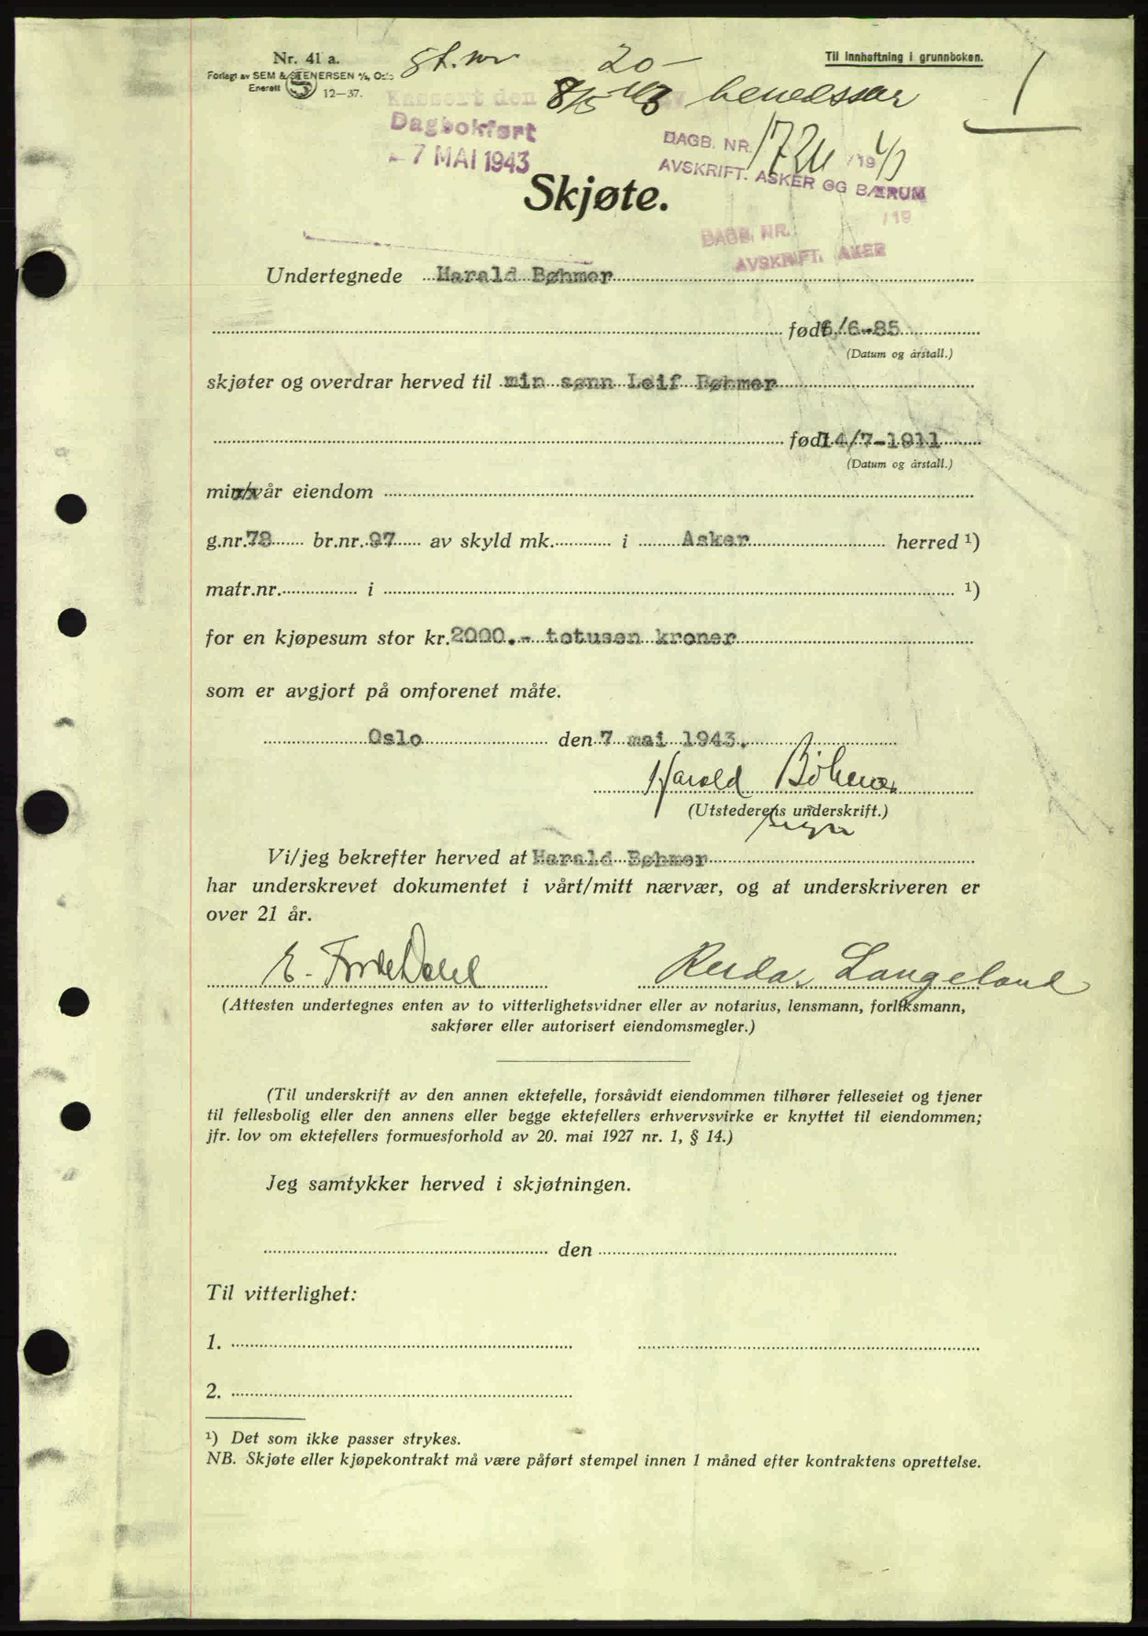 Nr. 41 a.
Forlagt av SEM & STENERSEN A/S, Oslo
Enerett 12—37.
St.mr 20-
Til innheftning i grunnboken.
1
Kassert den 8/5 43
Dagbokført
- 7 MAI 1943
DAGB. NR. /19 43
AVSKRIFT. ASKER OG BÆRUM
Skjøte.
/19
DAGB. NR.
AVSKRIFT. AKER
Undertegnede Harald Bøhmer
født 6/6-85
(Datum og årstall.)
skjøter og overdrar herved til min sønn Leif Bøhmer
født 14/7-1911
(Datum og årstall.)
min/vår eiendom
g.nr. 78 br.nr. 97 av skyld mk. i Asker herred ¹)
matr.nr. i ¹)
for en kjøpesum stor kr. 2000.- totusen kroner
som er avgjort på omforenet måte.
Oslo den 7 mai 1943.
Harald Bøhmer
(Utstederens underskrift.)
Vi/jeg bekrefter herved at Harald Bøhmer
har underskrevet dokumentet i vårt/mitt nærvær, og at underskriveren er
over 21 år.
Reidar Langeland
(Attesten undertegnes enten av to vitterlighetsvidner eller av notarius, lensmann, forliksmann,
sakfører eller autorisert eiendomsmegler.)
(Til underskrift av den annen ektefelle, forsåvidt eiendommen tilhører felleseiet og tjener
til fellesbolig eller den annens eller begge ektefellers erhvervsvirke er knyttet til eiendommen;
jfr. lov om ektefellers formuesforhold av 20. mai 1927 nr. 1, § 14.)
Jeg samtykker herved i skjøtningen.
den
Til vitterlighet:
1.
2.
¹) Det som ikke passer strykes.
NB. Skjøte eller kjøpekontrakt må være påført stempel innen 1 måned efter kontraktens oprettelse.